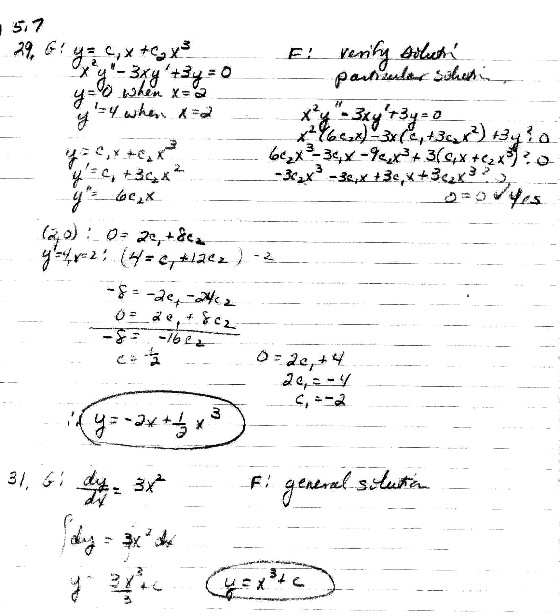 5.7
29. G: y = c₁x + c₂x³
x²y" - 3xy' + 3y = 0
y = 0 when x = 2
y' = 4 when x = 2
F: verify solution
particular solution
y = c₁x + c₂x³
y' = c₁ + 3c₂x²
y" = 6c₂x
x²y" - 3xy' + 3y = 0
x²(6c₂x) - 3x(c₁ + 3c₂x²) + 3y ? 0
6c₂x³ - 3c₁x - 9c₂x³ + 3(c₁x + c₂x³) ? 0
-3c₂x³ - 3c₁x + 3c₁x + 3c₂x³ ? 0
0 = 0 ✓ yes
(2,0): 0 = 2c₁ + 8c₂
y'=4, x=2: (4 = c₁ + 12c₂) -2
-8 = -2c₁ - 24c₂
0 = 2c₁ + 8c₂
-8 = -16c₂
c = 1/2
0 = 2c₁ + 4
2c₁ = -4
c₁ = -2
∴ y = -2x + 1/2 x³
31. G: dy/dx = 3x²
F: general solution
∫dy = 3x² dx
y = 3x³/3 + c
y = x³ + c